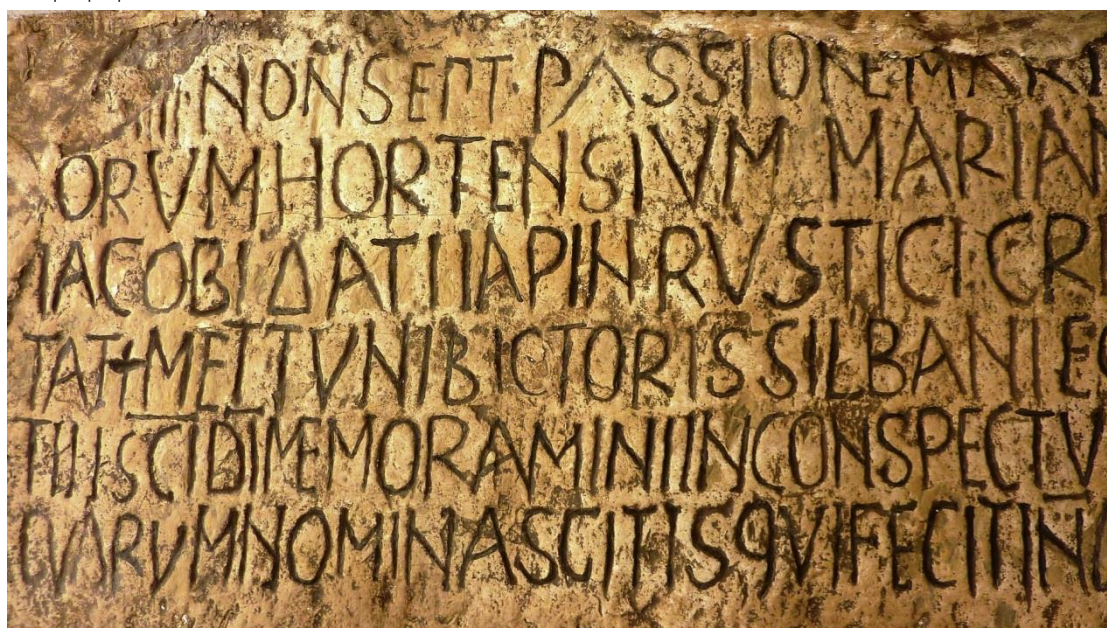 IIII NON SEPT · PASSIONE MART
ORVM HORTENSIVM MARIAN
IACOBI DATI IAPIN RVSTICI CRI
TAT + METTVNI BICTORIS SILBANI EG
TII SCI DI MEMORAMINI IN CONSPECTV
QVARVM NOMINA SCITIS QVI FECIT IN